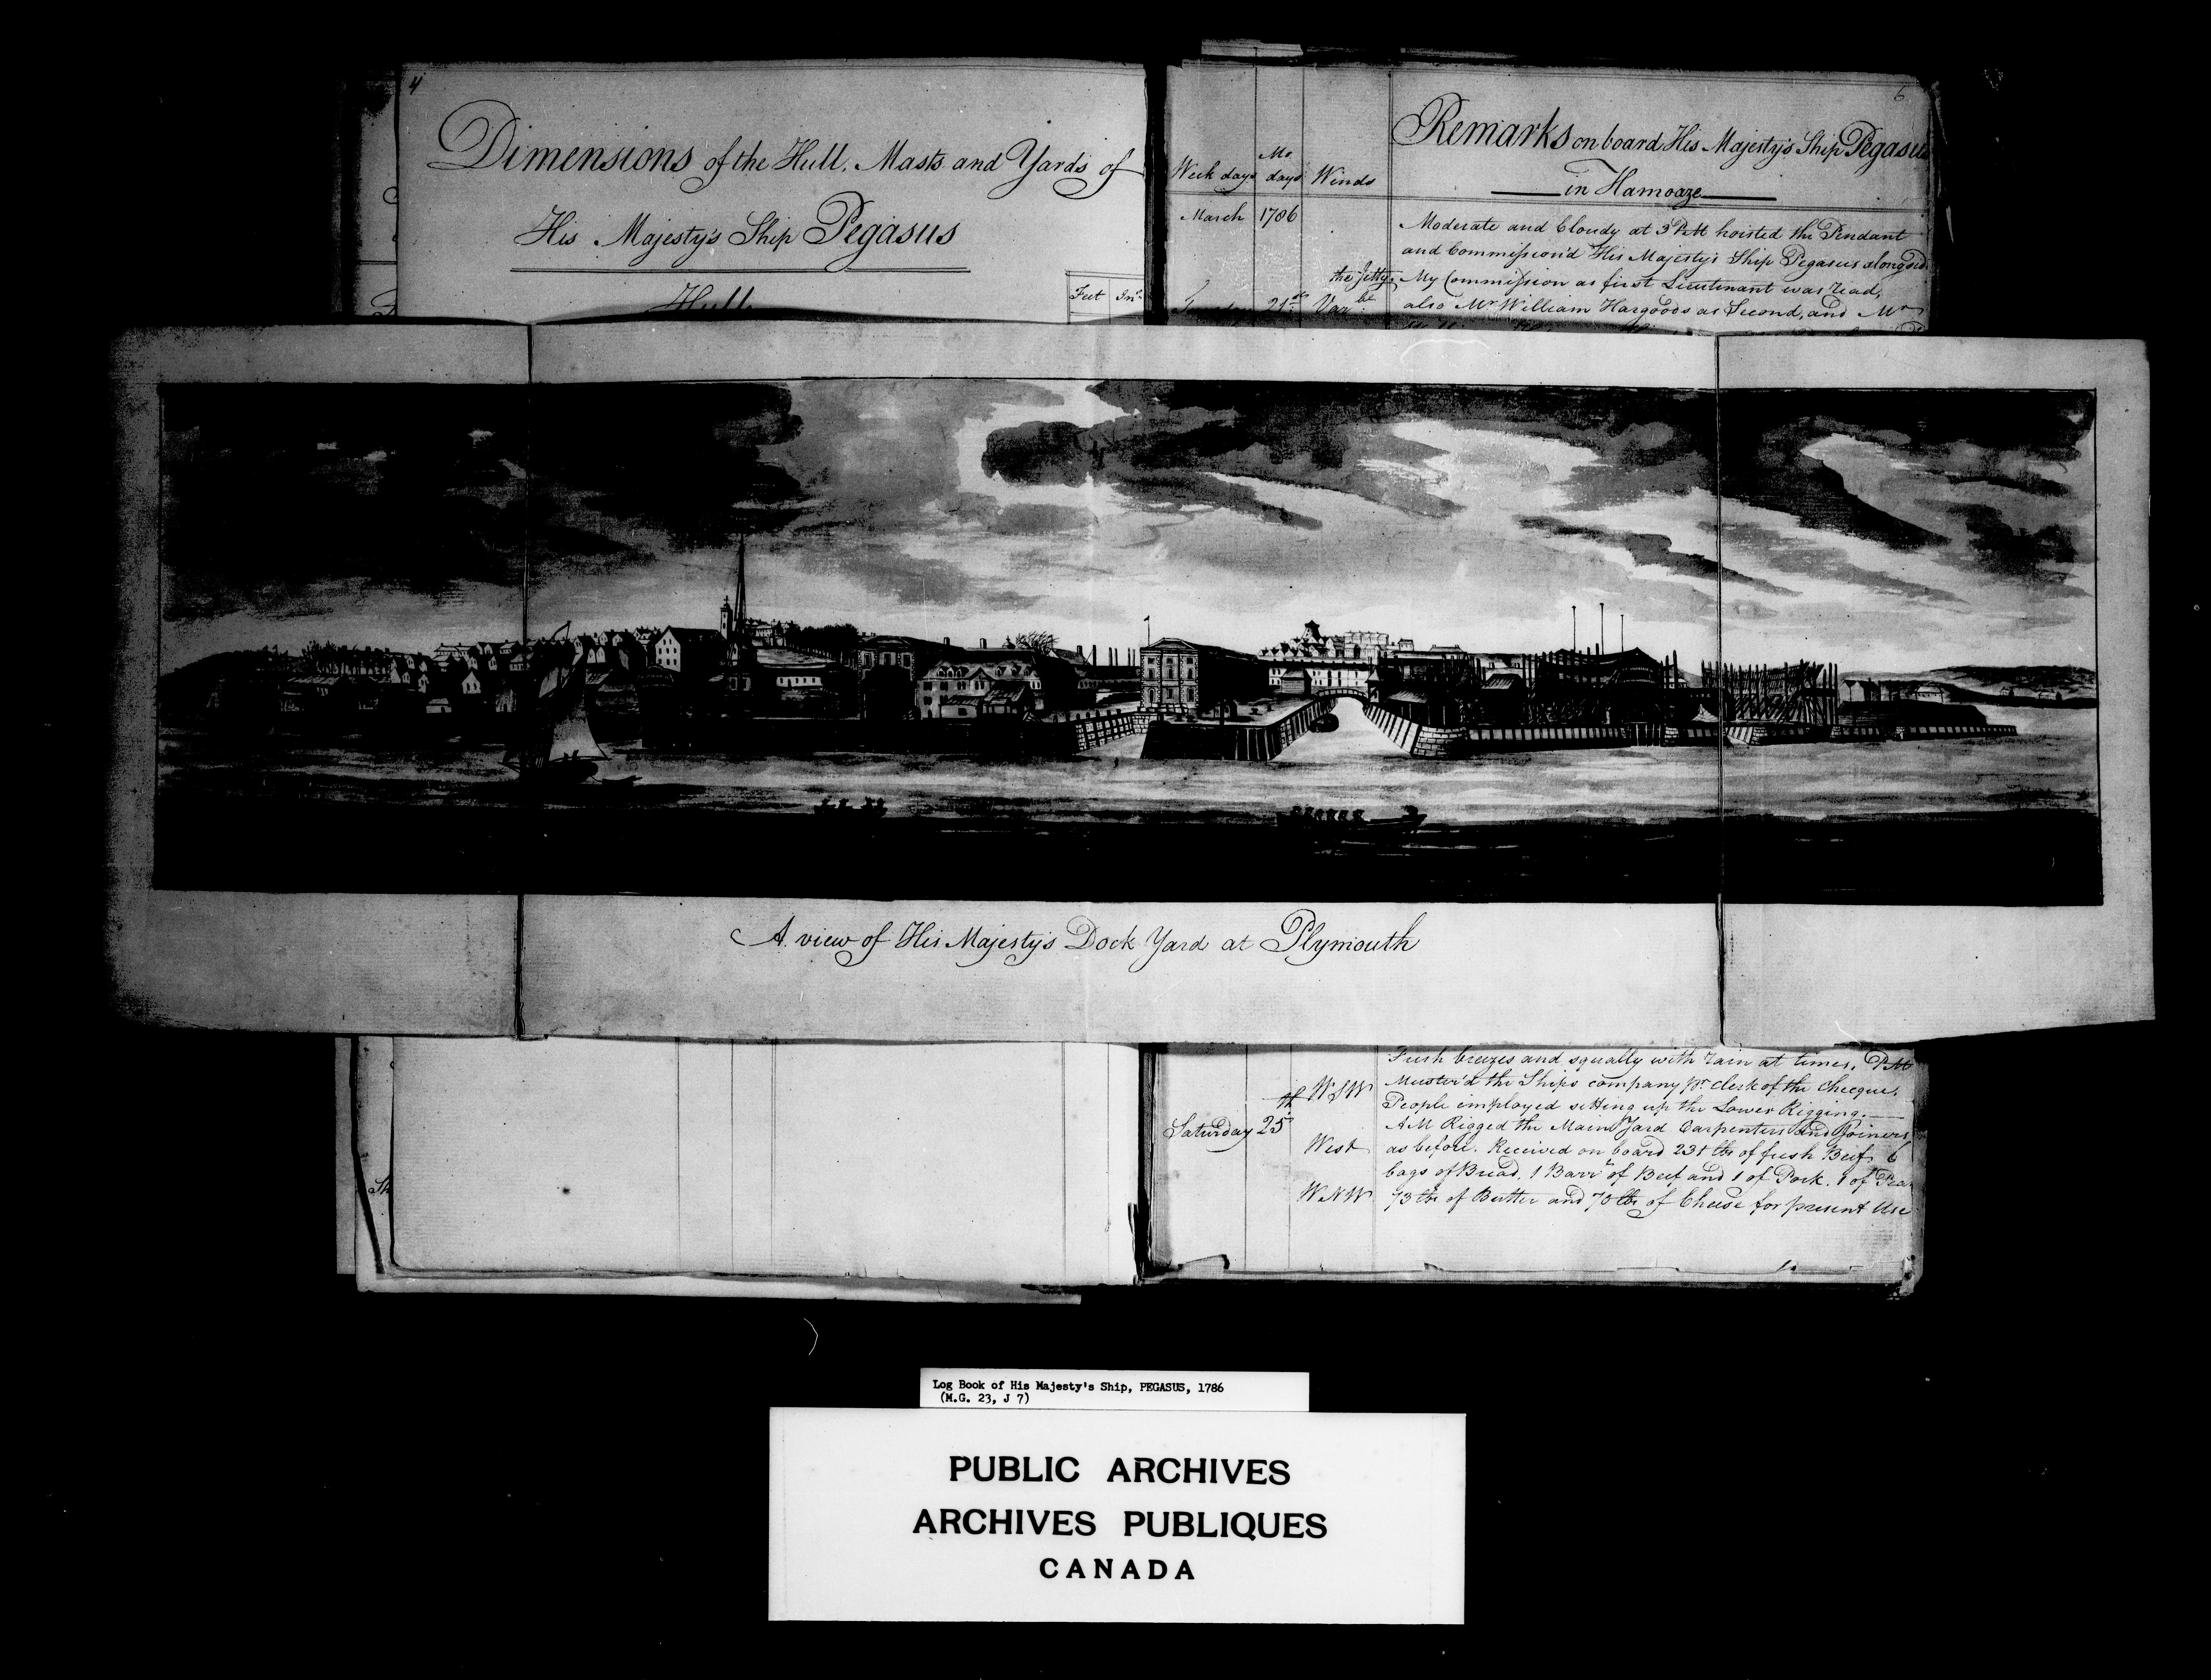 4
Dimensions of the Hull, Masts and Yards of
His Majesty's Ship Pegasus
Hull
Feet Ins
6
Remarks on board His Majesty's Ship Pegasus
in Hamoaze
Week days Mo days Winds
March 1786
Moderate and Cloudy at 3 PM hoisted the Pendant
and Commission'd His Majesty's Ship Pegasus alongside
the Jetty, My Commission as first Lieutenant was read,
Tuesday 21st Varbe also Mr William Hargoods as Second, and Mr
A view of His Majesty's Dock Yard at Plymouth
Fresh breezes and squally with rain at times, PM
WSW Muster'd the Ships company pr clerk of the checque.
People employed setting up the Lower Rigging.
Saturday 25th AM Rigged the Main Yard Carpenters and Joiners
West as before. Received on board 231 lbs of fresh Beef, 6
bags of Bread, 1 Barrl of Beef and 1 of Pork. 1 of Pease
WNW 73 lbs of Butter and 70 lbs of Cheese for present Use
Sh
Log Book of His Majesty's Ship, PEGASUS, 1786
(M.G. 23, J 7)
PUBLIC ARCHIVES
ARCHIVES PUBLIQUES
CANADA